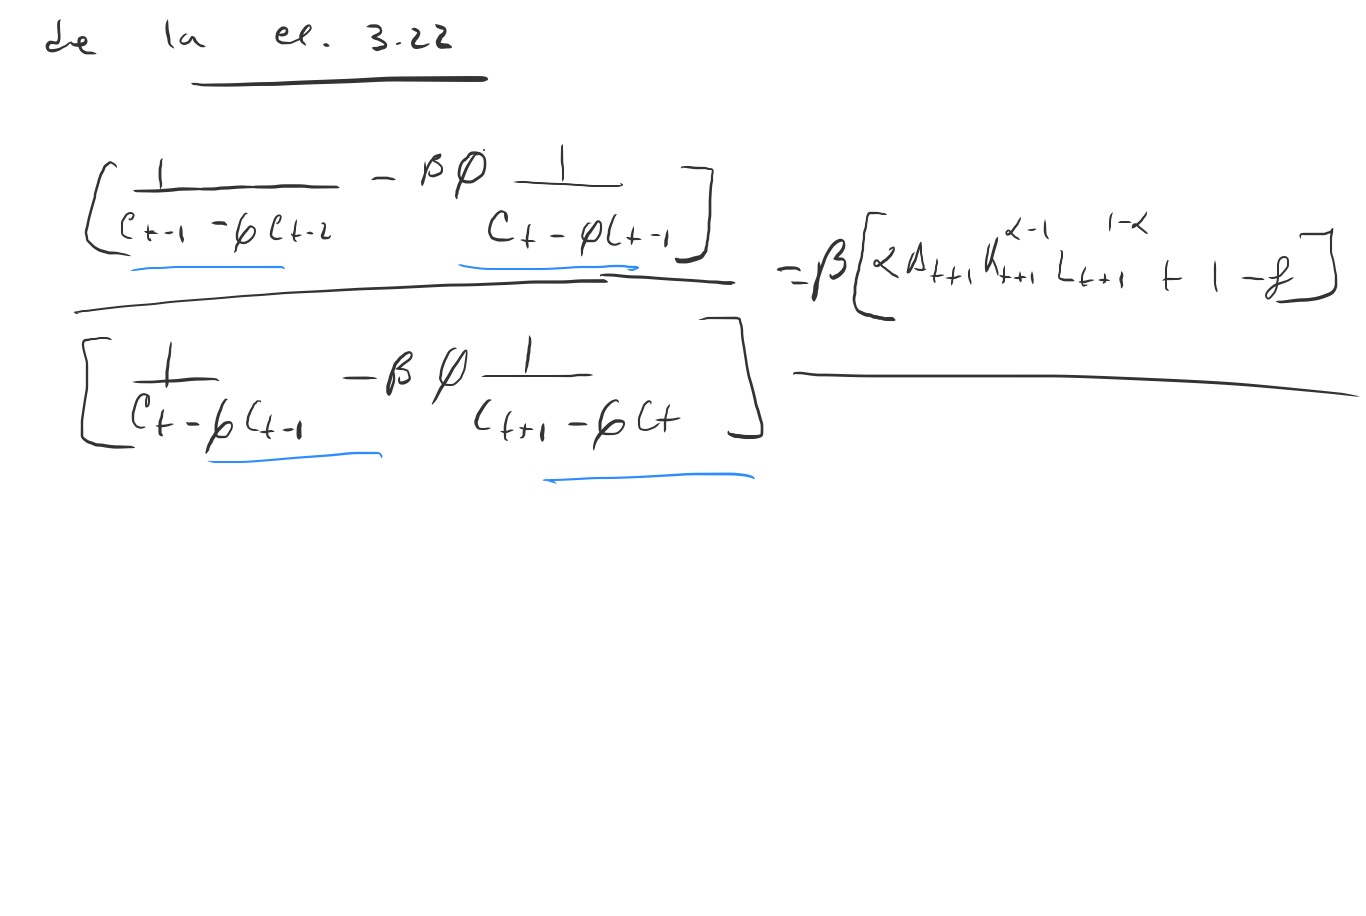 de la ec. 3.22
[ 1 / (C_{t-1} - ϕC_{t-2}) - βϕ 1 / (C_t - ϕC_{t-1}) ] / [ 1 / (C_t - ϕC_{t-1}) - βϕ 1 / (C_{t+1} - ϕC_t) ] = β[ αA_{t+1} K_{t+1}^{α-1} L_{t+1}^{1-α} + 1 - δ ]